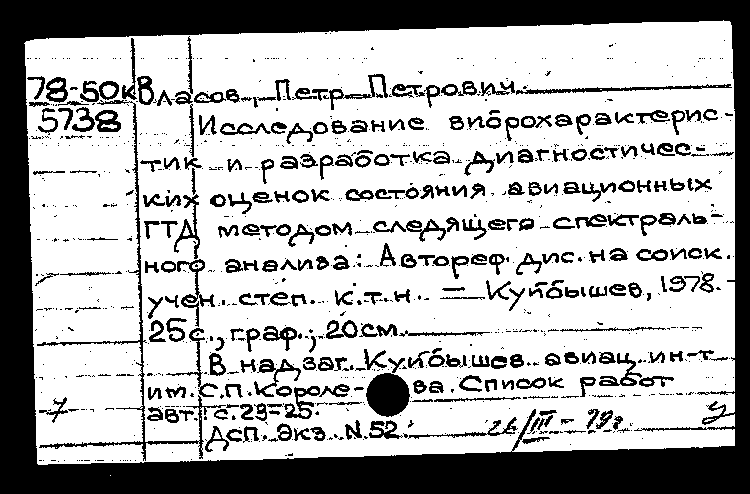 78-50к Власов, Петр Петрович.
5738 Исследование виброхарактерис-
тик и разработка диагностичес-
ких оценок состояния авиационных
ГТД методом следящего спектраль-
ного анализа: Автореф. дис. на соиск.
учен. степ. к.т.н. — Куйбышев, 1978.-
25с., граф.; 20см.
В надзаг. Куйбышев. авиац. ин-т
им. С.П. Короле-ва. Список работ
авт.: с. 23-25.
Дсп. Экз. N.52. 26/III-79г у